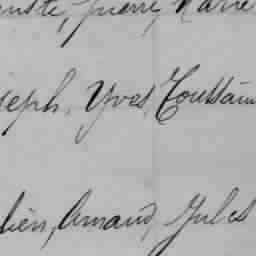 Pierre Marie
Joseph, Yves, Toussain
lien, Amand, Jules